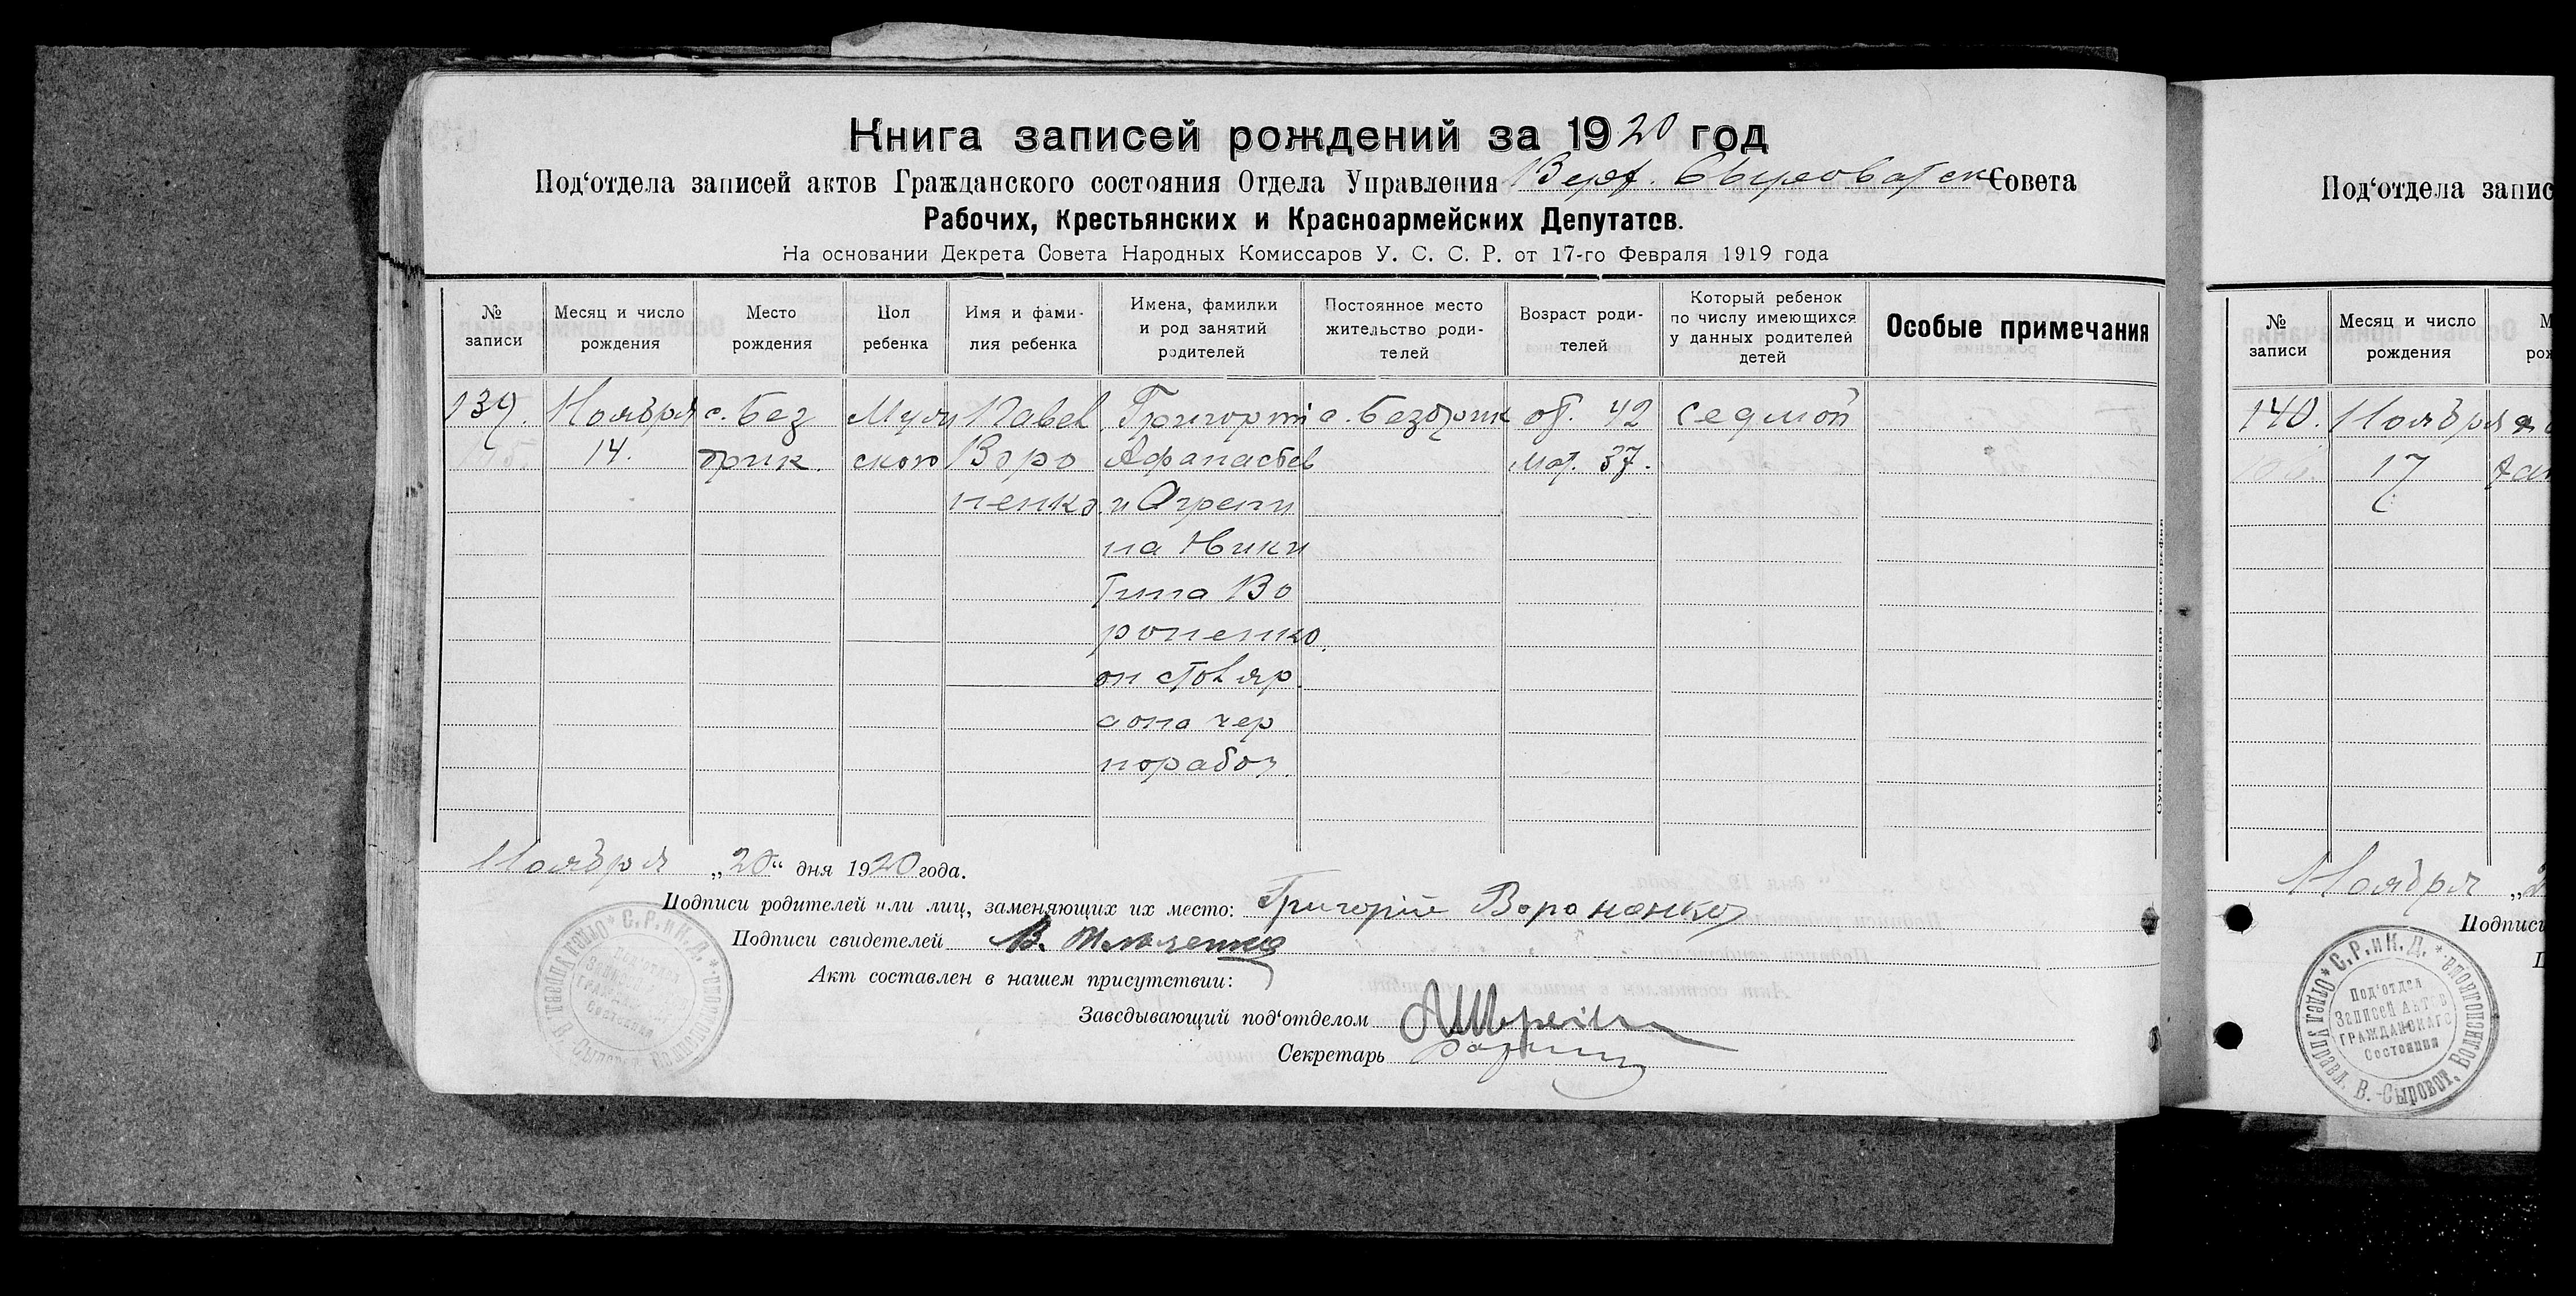 Книга записей рождений за 1920 год
Под‘отдела записей актов Гражданского состояния Отдела Управления Верх. Сыроватск Совета
Рабочих, Крестьянских и Красноармейских Депутатов.
На основании Декрета Совета Народных Комиссаров У. С. С. Р. от 17-го Февраля 1919 года
№ записи
Месяц и число рождения
Место рождения
Пол ребенка
Имя и фами-
лия ребенка
Имена, фамилии
и род занятий
родителей
Постоянное место
жительство роди-
телей
Возраст роди-
телей
Который ребенок
по числу имеющихся
у данных родителей
детей
Особые примечания
139.
Ноября
14.
с. Без
дрик.
Муж
ского
Павел
Воро
ненко.
Григорий
Афанасьев
и Агрепи
на Ники
тина Во
роненко.
он столяр.
а она чер
норабоч.
с. Бездрик
от. 42
мат. 37.
седмой
Ноября „20“ дня 1920 года.
Подписи родителей или лиц, заменяющих их место: Григорій Вороненко
Подписи свидетелей В.
Акт составлен в нашем присутствии:
Заведывающий под‘отделом
Секретарь
Сумы, 1-ая Советская типография
С.Р.иК.Д.
Под‘отдел
Записей Актов
ГРАЖДАНСКАГО
Состояния
Под‘отдела запис
№ записи
Месяц и число рождения
М
рож
140.
Ноября
17
Ноября „2
Подписи
П
* С.Р.иК.Д. * Отдел Управл. В.-Сыроват. Волисполкома.
Под‘отдел
Записей Актов
ГРАЖДАНСКАГО
Состояния